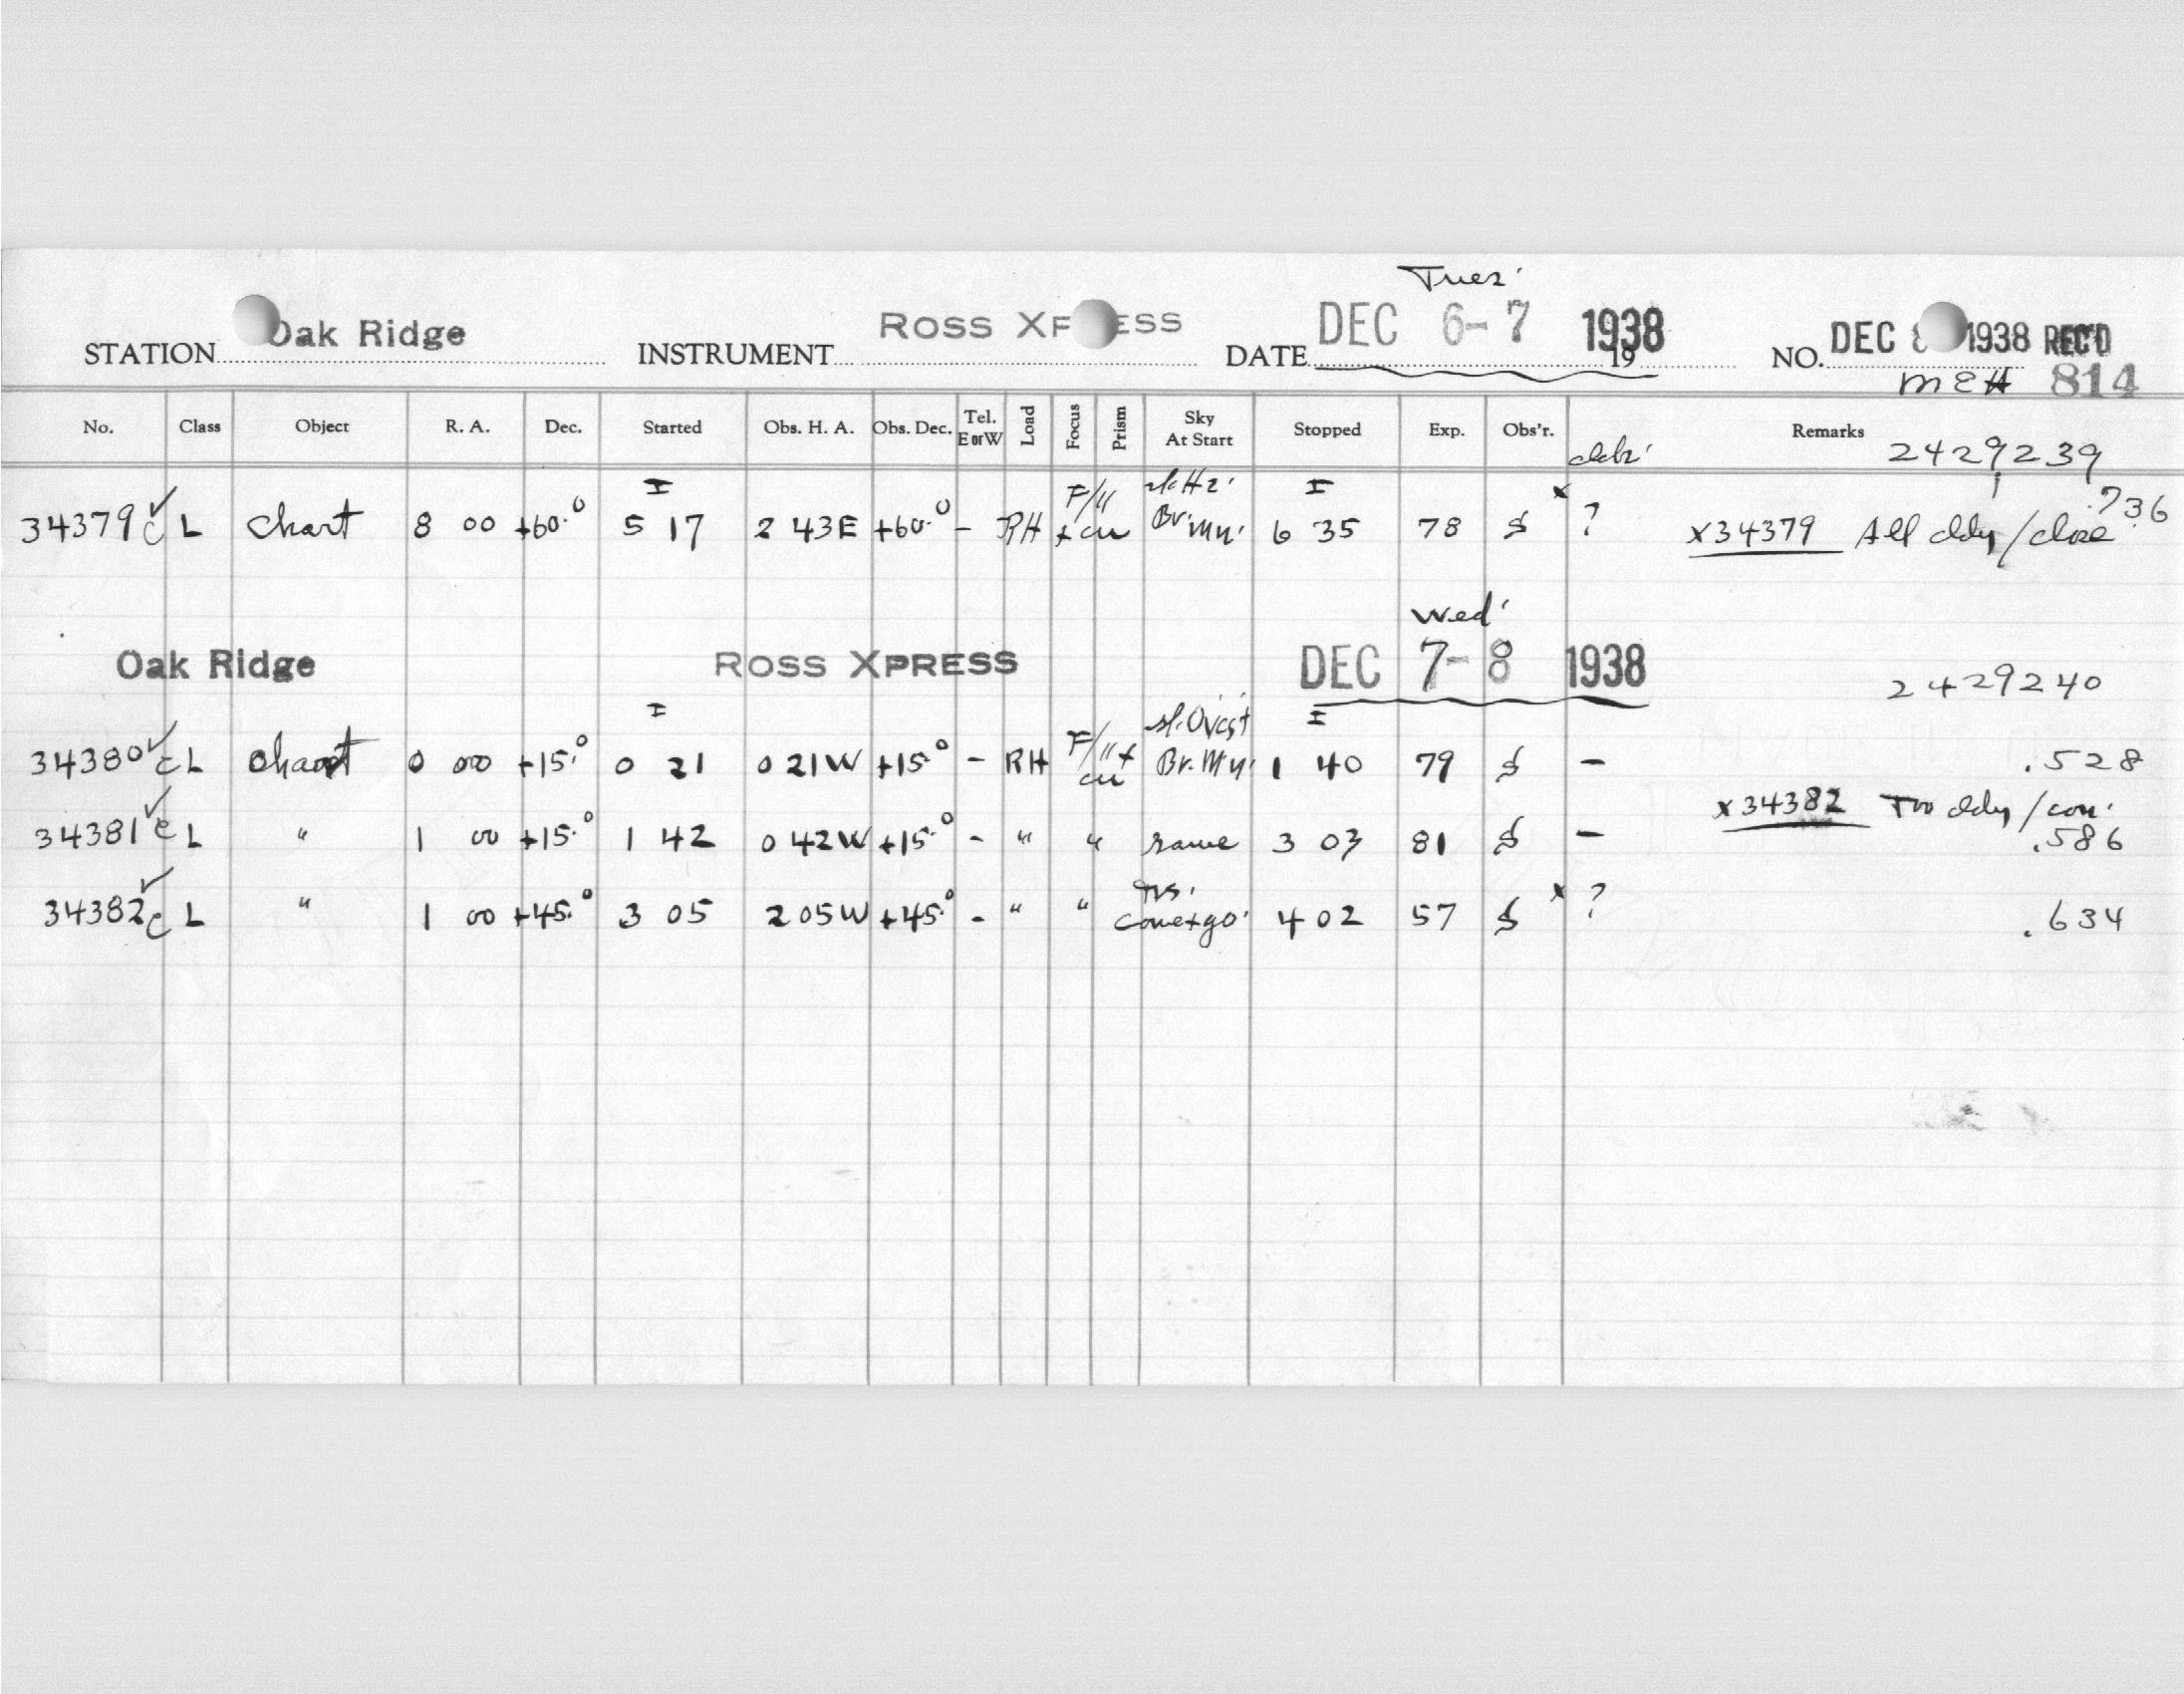 Tues'
STATION Oak Ridge INSTRUMENT ROSS XPRESS DATE DEC 6-7 1938 19 NO. DEC 8 1938 REC'D
MEH 814
No. Class Object R. A. Dec. Started Obs. H. A. Obs. Dec. Tel. E or W Load Focus Prism Sky At Start Stopped Exp. Obs'r. Remarks
2429239
I F/11 sl. Hz. I .736
34379 c L Chart 8 00 +60.° 5 17 2 43E +60.° - RH + cu Br. Mn. 6 35 78 x ? x34379 All cldy/close
Wed'
Oak Ridge ROSS XPRESS DEC 7-8 1938 2429240
I sl. Ovcst I
34380 c L Chart 0 00 +15.° 0 21 0 21W +15.° - RH F/11+ cu Br. Mn. 1 40 79 - .528
x34382 Too cldy/con.
34381 c L " 1 00 +15.° 1 42 0 42W +15.° - " " same 3 03 81 - .586
34382 c L " 1 00 +45.° 3 05 2 05W +45.° - " " come+go 4 02 57 x ? .634